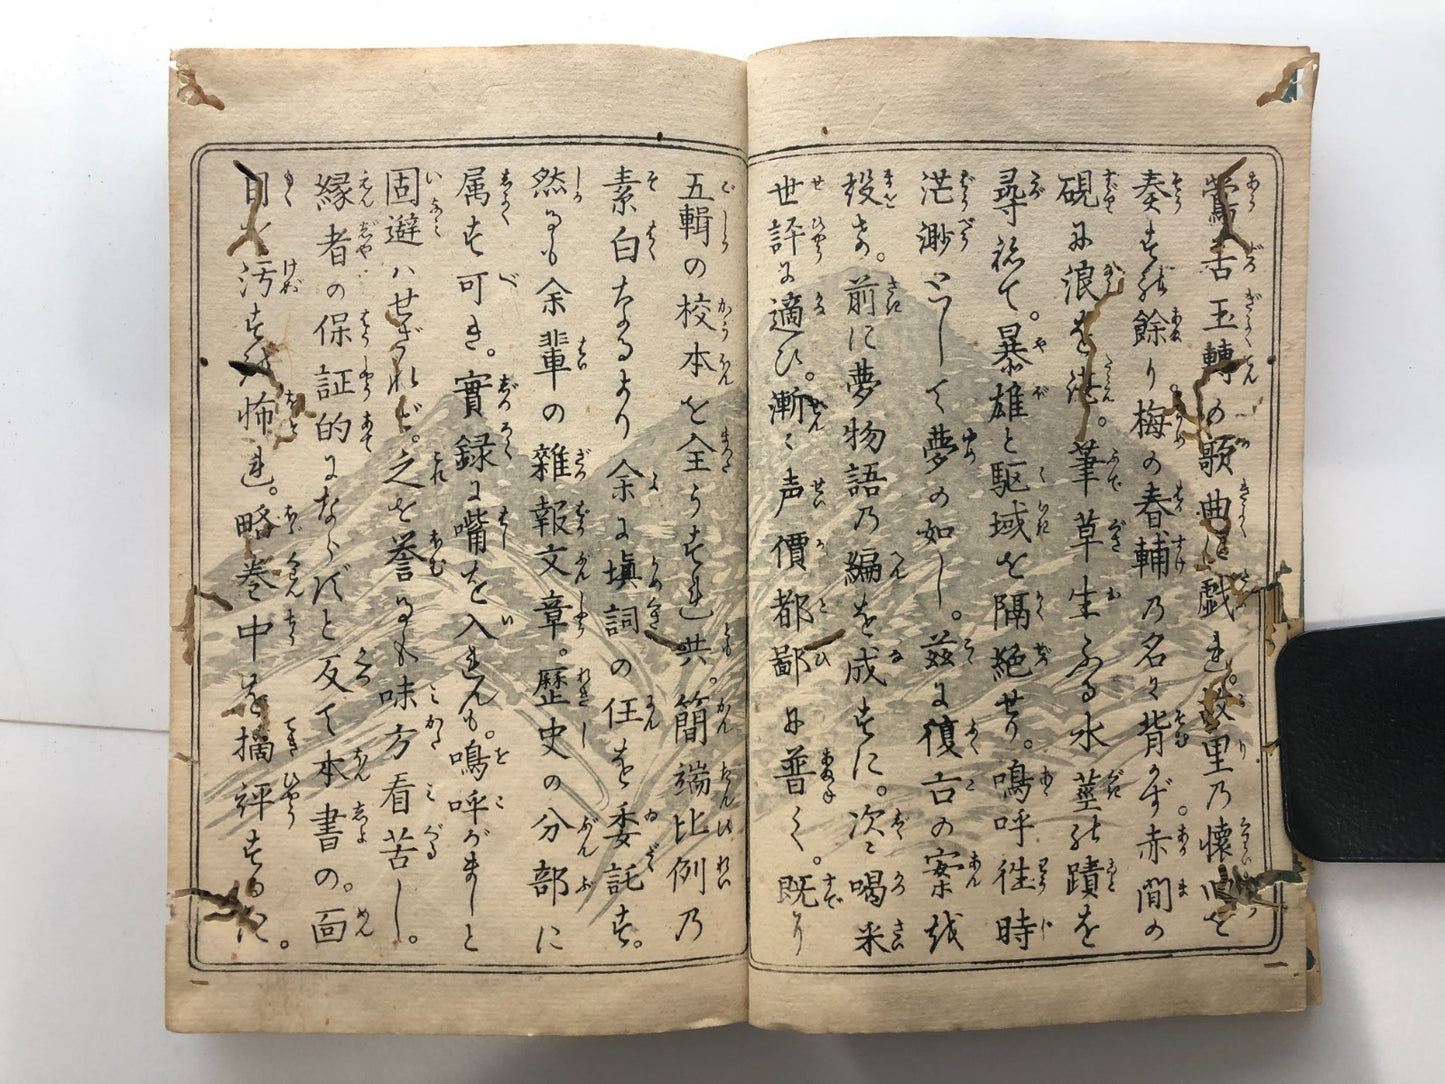 鶯舌玉轉の歌曲に戯れ。故里乃懐旧を
奏すれ餘り梅の春輔乃名に背かず。赤間の
硯に浪を港。筆草生ふる水莖の蹟を
尋ねて。暴雄と駆域を隔絶せり。嗚呼徃時
茫渺として夢の如し。茲に復古の案を
設け。前に夢物語乃編を成すに。次ニ喝米
世評に適ひ。漸ニ声價都鄙に普く。既り
五輯の校本を全うすれ共。簡端比例乃
素白なるより余に塡詞の任を委託す。
然るも余輩の雜報文章。歴史の分部に
属す可き。實録に嘴を入れんも。嗚呼がましと
固避ハせざれど。之を誉るも味方看苦し。
縁者の保証的にならずと反て本書の。面
目を汚すを怖れ。略巻中を摘評するに。